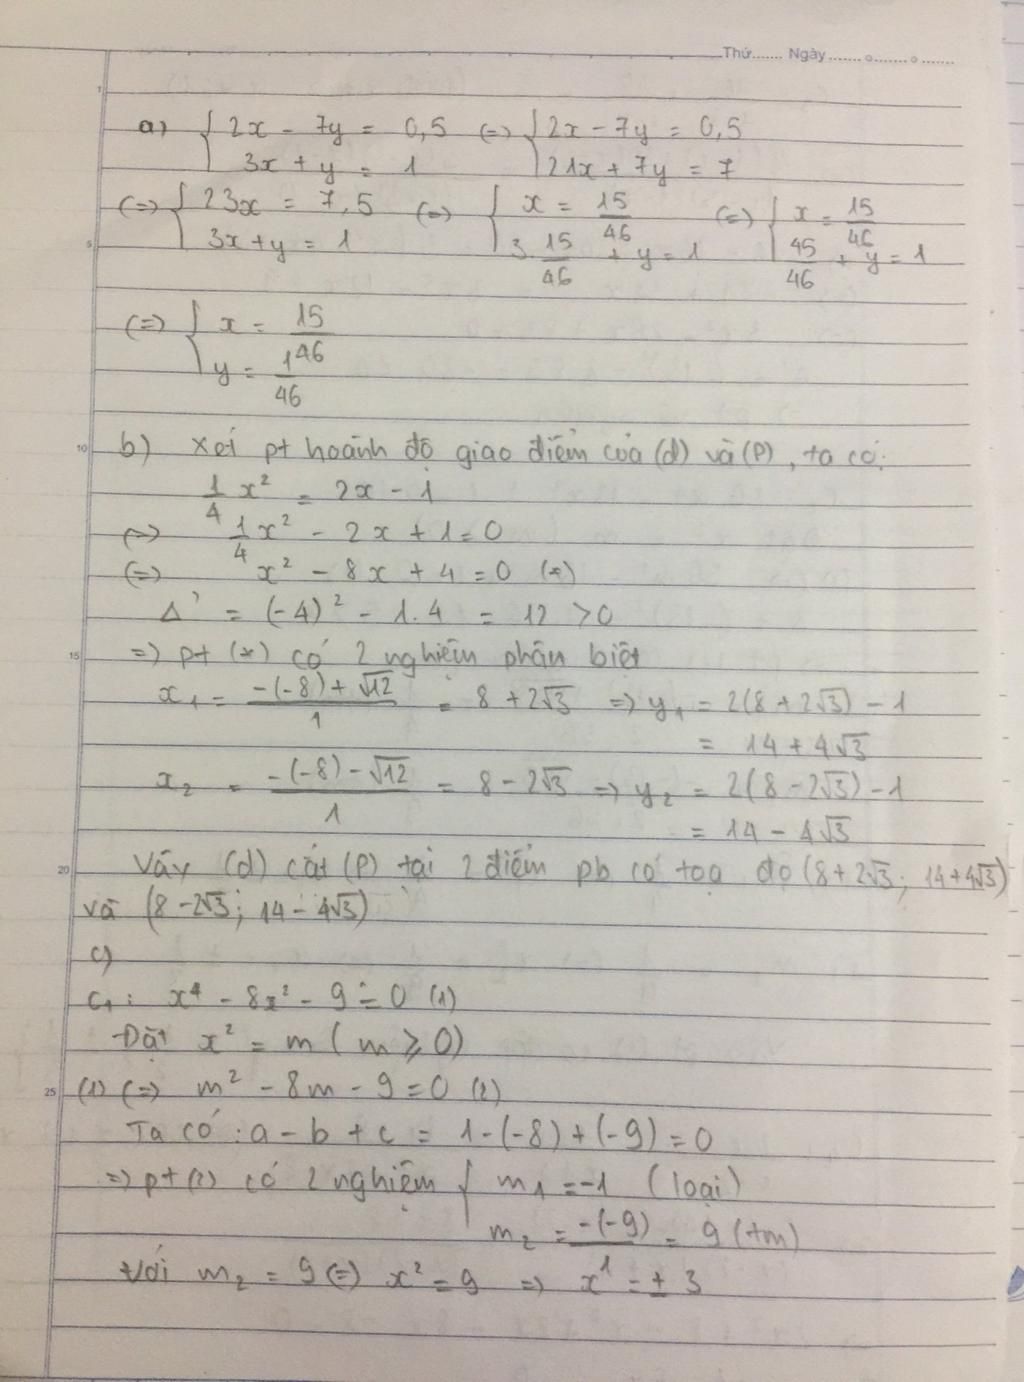 Thứ....... Ngày.......o.......o.......
1
a) { 2x - 7y = 0,5 (=) { 2x - 7y = 0,5
3x + y = 1 21x + 7y = 7
(=) { 23x = 7,5 (=) { x = 15/46 (=) { x = 15/46
5 3x + y = 1 3 15/46 + y = 1 45/46 + y = 1
(=) { x = 15/46
y = 1/46
10 b) Xét pt hoành độ giao điểm của (d) và (P), ta có:
1/4 x² = 2x - 1
(=) 1/4 x² - 2x + 1 = 0
(=) x² - 8x + 4 = 0 (*)
Δ' = (-4)² - 1.4 = 12 > 0
15 => pt (*) có 2 nghiệm phân biệt
x₁ = (-(-8) + √12)/1 = 8 + 2√3 => y₁ = 2(8 + 2√3) - 1
= 14 + 4√3
x₂ = (-(-8) - √12)/1 = 8 - 2√3 => y₂ = 2(8 - 2√3) - 1
= 14 - 4√3
20 Vậy (d) cắt (P) tại 2 điểm pb có toạ độ (8 + 2√3; 14 + 4√3)
và (8 - 2√3; 14 - 4√3)
c)
C₁: x⁴ - 8x² - 9 = 0 (1)
Đặt x² = m ( m ⩾ 0)
25 (1) (=) m² - 8m - 9 = 0 (2)
Ta có : a - b + c = 1 - (-8) + (-9) = 0
=> pt (2) có 2 nghiệm { m₁ = -1 (loại)
m₂ = -(-9)/1 = 9 (tm)
Với m₂ = 9 (=) x² = 9 => x = ± 3